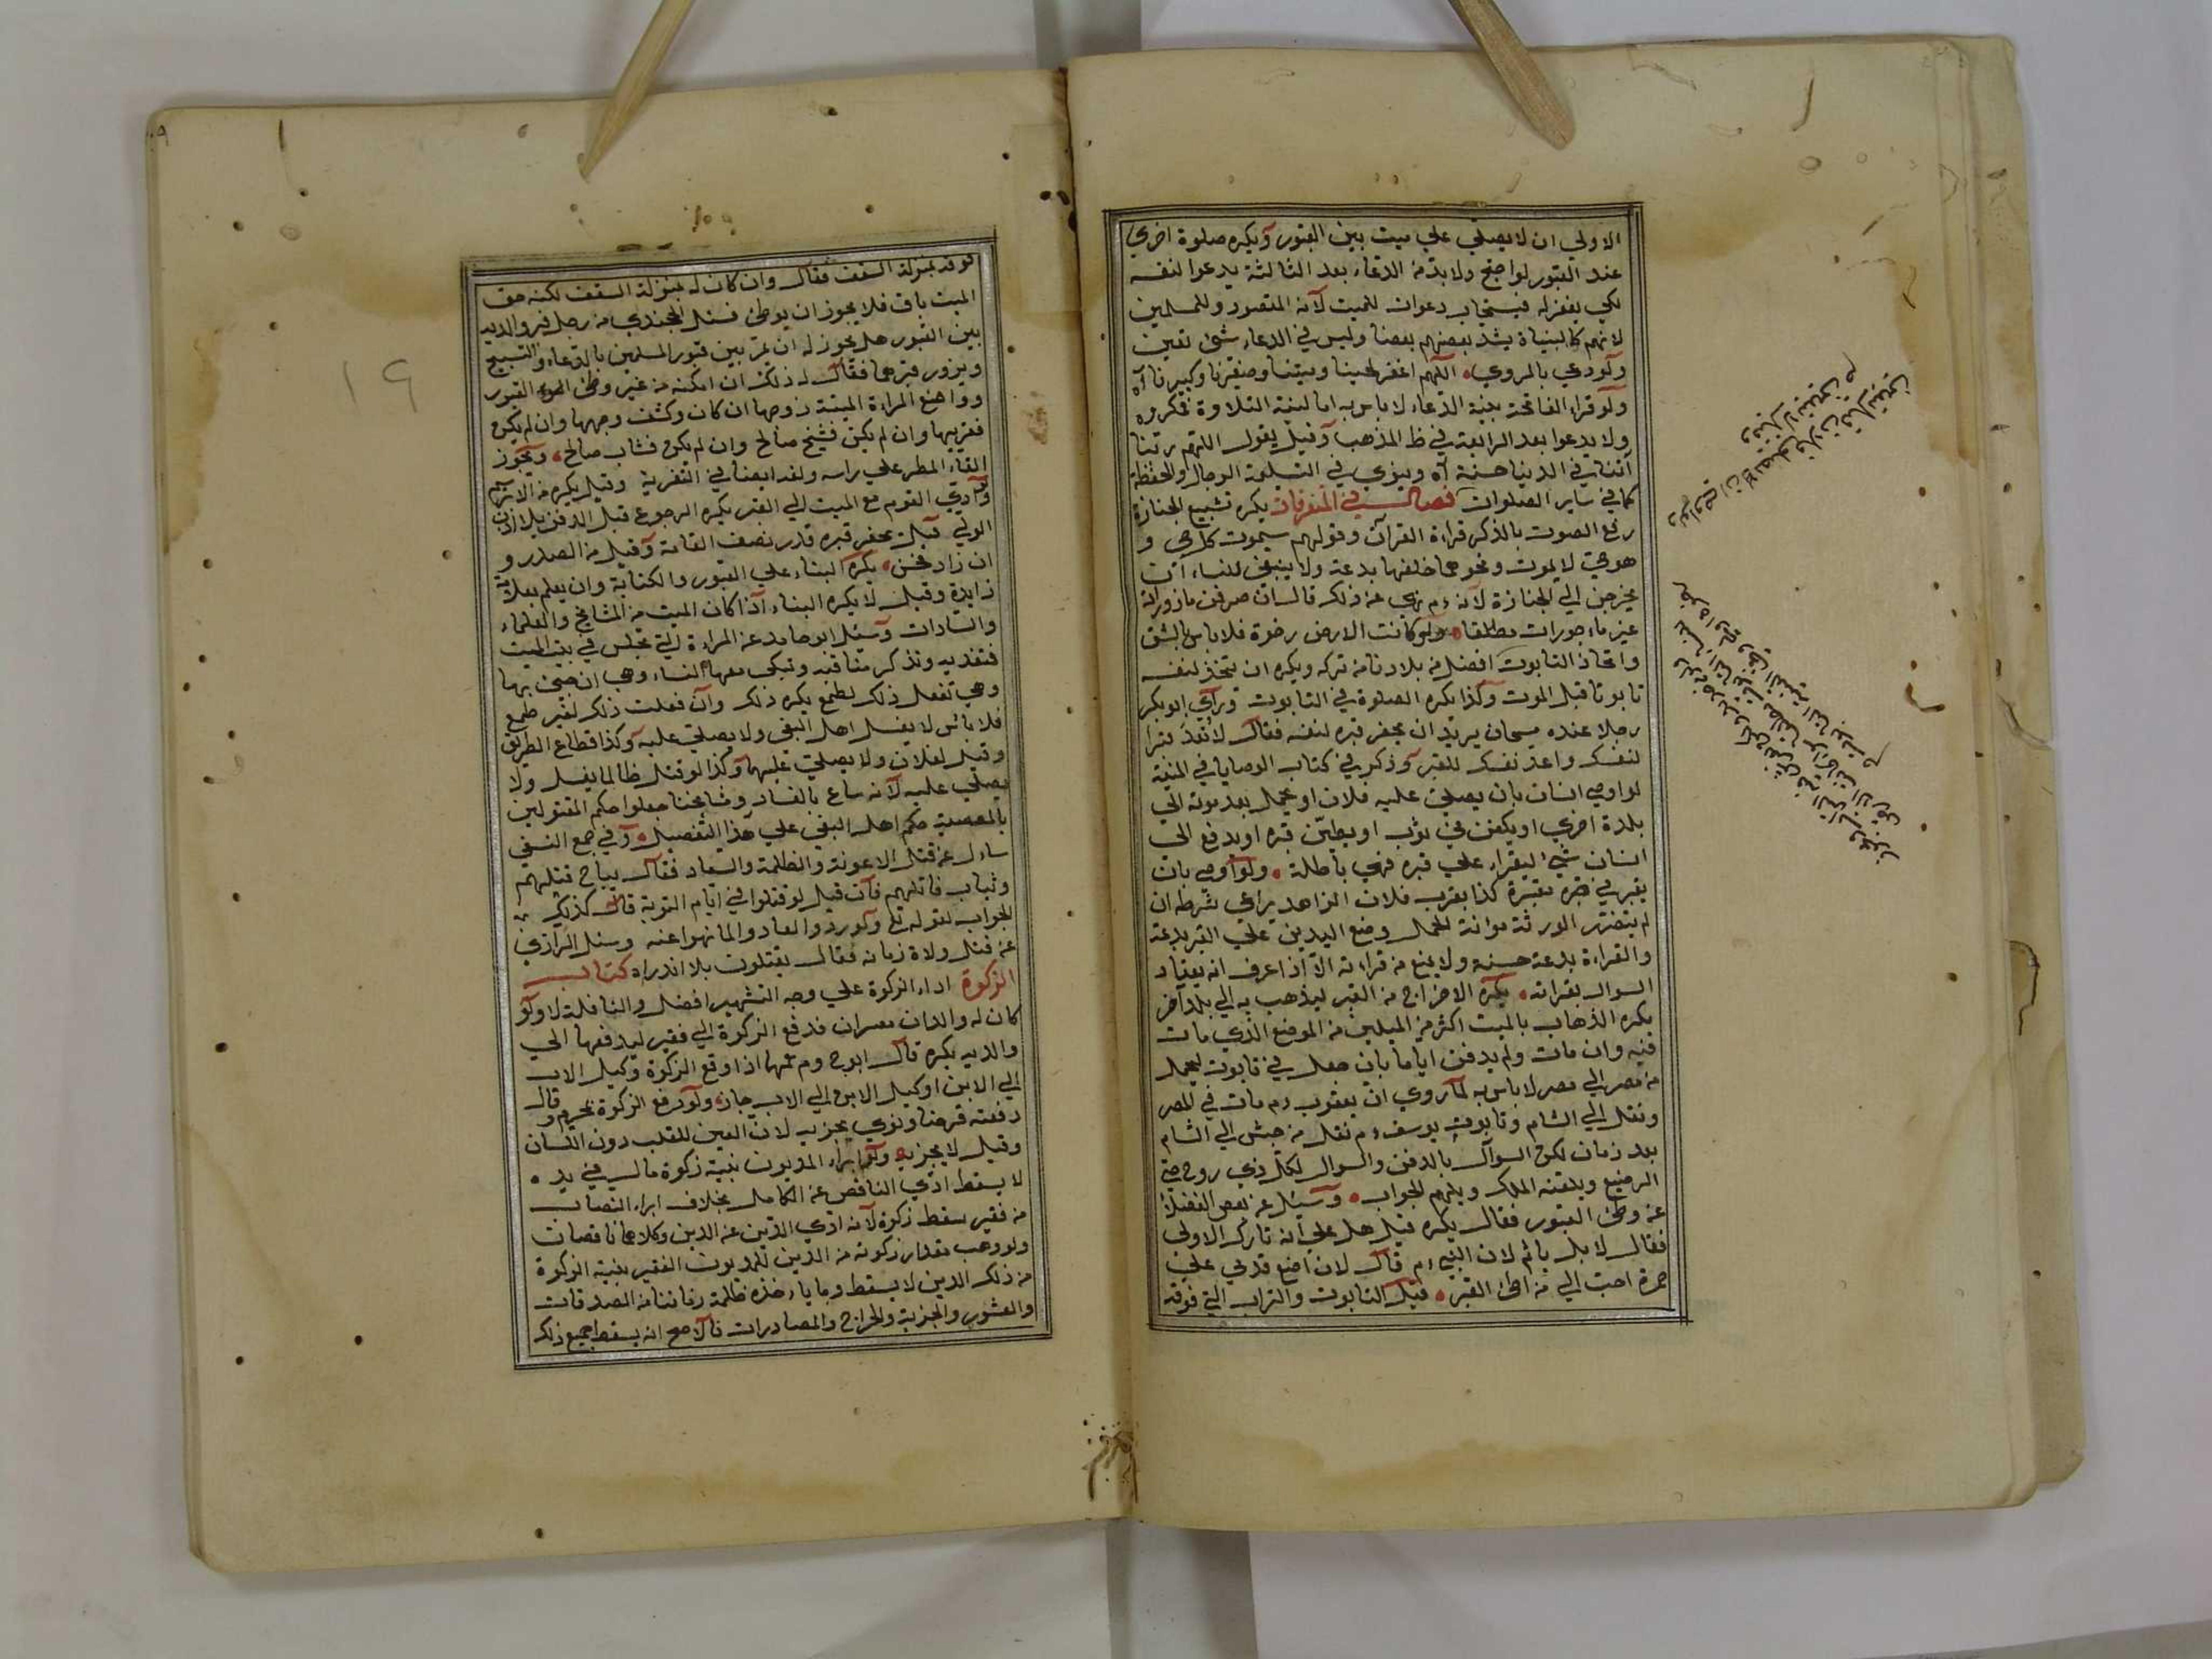 الاولي ان لا يصلي علي ميت بين القبور ويكره صلوة اخري
عند القبور لواجنح ولا بد من الدعاء بعد الثالثة يدعوا لنفسه
لكي يغفر له فيستجاب دعوات للميت لانه المقصود وللمسلمين
لانهم كالبنيان يشد بعضهم بعضا وليس في الدعاء شئ تعين
ولو دعي بالمروي اللهم اغفر لحينا وميتنا وصغيرنا وكبيرنا آه
ولو قراء الفاتحة بنية الدعاء لا باس به اما لبنية التلاوة فمكروه
ولا يدعوا بعد الرابعة في ظ المذهب وقيل يقول اللهم ربنا
آتنا في الدنيا حسنة آه وينوي في التسليمة الرجال والحفظة
كما في ساير الصلوات فصل في المتفرقات يكره تشييع الجنازة
رفع الصوت بالذكر قراءة القرآن وقولهم سيموت كل حي و
هو حي لا يموت ونحوهما خلفها بدعة ولا ينبغي للنساء ان
يخرجن الي الجنازة لانه ءم نهي عن ذلك قال انصرفن مازورات
غير ماءجورات مطلقا ولو كانت الارض رخوة فلا باس بالشق
واتخاذ التابوت افضل من بلادنا من تركه ويكره ان يتخذ لنفسه
تابوتا قبل الموت وكذا يكره الصلوة في التابوت وراي ابو بكر
رجلا عنده مسحات يريد ان يحفر قبره لنفسه فقال لا تعد قبرا
لنفسك واعد نفسك للقبر وذكر في كتاب الوصايا في المنية
لو اوصي انسان بان يصلي عليه فلان او يحمل بعد موته الي
بلدة اخري او يكفن في ثوب او يطين قبره او يدفع الي
انسان شئ ليقراء علي قبره فهي باطلة ولو اوصي بان
يقبر في مقبرة كذا بقرب فلان الزاهد يراعي شرطه ان
لم يتضرر الورثة موانة الحمل وضع اليدين علي القبر بدعة
والقراءة بدعة حسنة ولا يمنع من قراءته الا اذا عرف انه يعتاد
السوال بقراته يكره الاخراج من القبر ليذهب به الي بلد آخر
يكره الذهاب بالميت اكثر من الميلين من الموضع الذي مات
فيه وان مات ولم يدفن اياما بان جعل في تابوت ليحمل
من مصر الي مصر لا باس به لما روي ان يعقوب ءم مات في المصر
ونقل الي الشام وتابوت يوسف ءم نقل من حبش الي الشام
بعد زمان لكن السوآل بالدفن والسوال لكل ذي روح حتي
الرضيع ويلقنه الملك ويلهم الجواب وسئل عن بعض الفضلاء
عن وطئ القبور فقال يكره قيل هل علي انه تارك الاولي
فقال لا بل ياثم لان النبي ءم قال لان اضع قدمي علي
جمرة احب الي من اطئ القبر قيل التابوت والتراب التي فوقه
فوقه بمنزلة السقف فقال وان كان له بمنزلة السقف لكنه حق
الميت باق فلا يجوز ان يوطئ فسئل الخجندي من رجل قبر والديه
بين القبور هل يجوز له ان يمر بين قبور المسلمين بالدعاء والتسبيح
ويزور قبرهما فقال له ذلك ان امكنه من غير وطئ القبور
وواضع المراءة الميتة زوجها ان كان وكشف وجهها وان لم يكن
فقريبها وان لم يكن فشيخ صالح وان لم يكن فشاب صالح ويجوز
القاء المطر علي راسه
ولو آوي القوم مع الميت الي القبر يكره الرجوع قبل الدفن بلا اذن
الولي قيل يحفر قبره قدر نصف القامة وقيل من الصدر و
ان زاد فحسن يكره البناء علي القبور والكتابة وان يعلم بعلامة
زايدة وقيل لا يكره البناء اذا كان الميت من المشايخ والعلماء
والسادات وسئل ابو حامد عن المراءة التي تجلس في بيت الميت
فتعديه وتذكر مناقبه وتبكي معها النساء وهي ان جئ بها
وهي تفعل ذلك لطمع يكره ذلك وان فعلت ذلك لغير طمع
فلا باس لا يغسل اهل البغي ولا يصلي عليه وكذا قطاع الطريق
وقيل يغسلان ولا يصلي عليهما وكذا لو قتل ظالما يغسل ولا
يصلي عليه لانه ساع بالفساد ومشايخنا جعلوا حكم المقتولين
بالمعصية حكم اهل البغي علي هذا التفصيل وفي جمع النسفي
ساءل عن قتل الاعونة والظلمة والسعاد فقال يباح قتلهم
ويثاب قاتلهم فان قيل لو قتلوا في ايام التوبة قال كذلك
الجواب لقوله تع ولو ردوا لعادوا لما نهوا عنه وسئل الرازي
عن قتل ولاة زمانه فقال يقتلون بلا انذراه كتاب
الزكوة اداء الزكوة علي وجه التشهير افضل والنافلة لا ولو
كان له والدان معسران فدفع الزكوة الي فقير ليدفعها الي
والديه يكره قال ابوح وم حمهما اذا وقع الزكوة وكيل الاب
الي الابن او كيل الابن الي الاب جان ولو دفع الزكوة
دفعته قرضا ونوي يجزيه لان العين للقلب دون اللسان
وقيل لا يجزيه ولو ابراء المديون بنية زكوة مال في يده
لا يسقط ادي الناقص عن الكامل بخلاف ابراء النصاب
من فقير سقط زكوة لانه ادي الدين عن الدين وكلاهما ناقصان
ولو وهب مقدار زكوته من الدين للمديون الفقير بنية الزكوة
من ذلك الدين لا يسقط وما ياءخذه ظلمة زماننا من الصدقات
والعشور والجزية والخراج والمصادرات فالاصح انه يسقط جميع ذلك
١٩